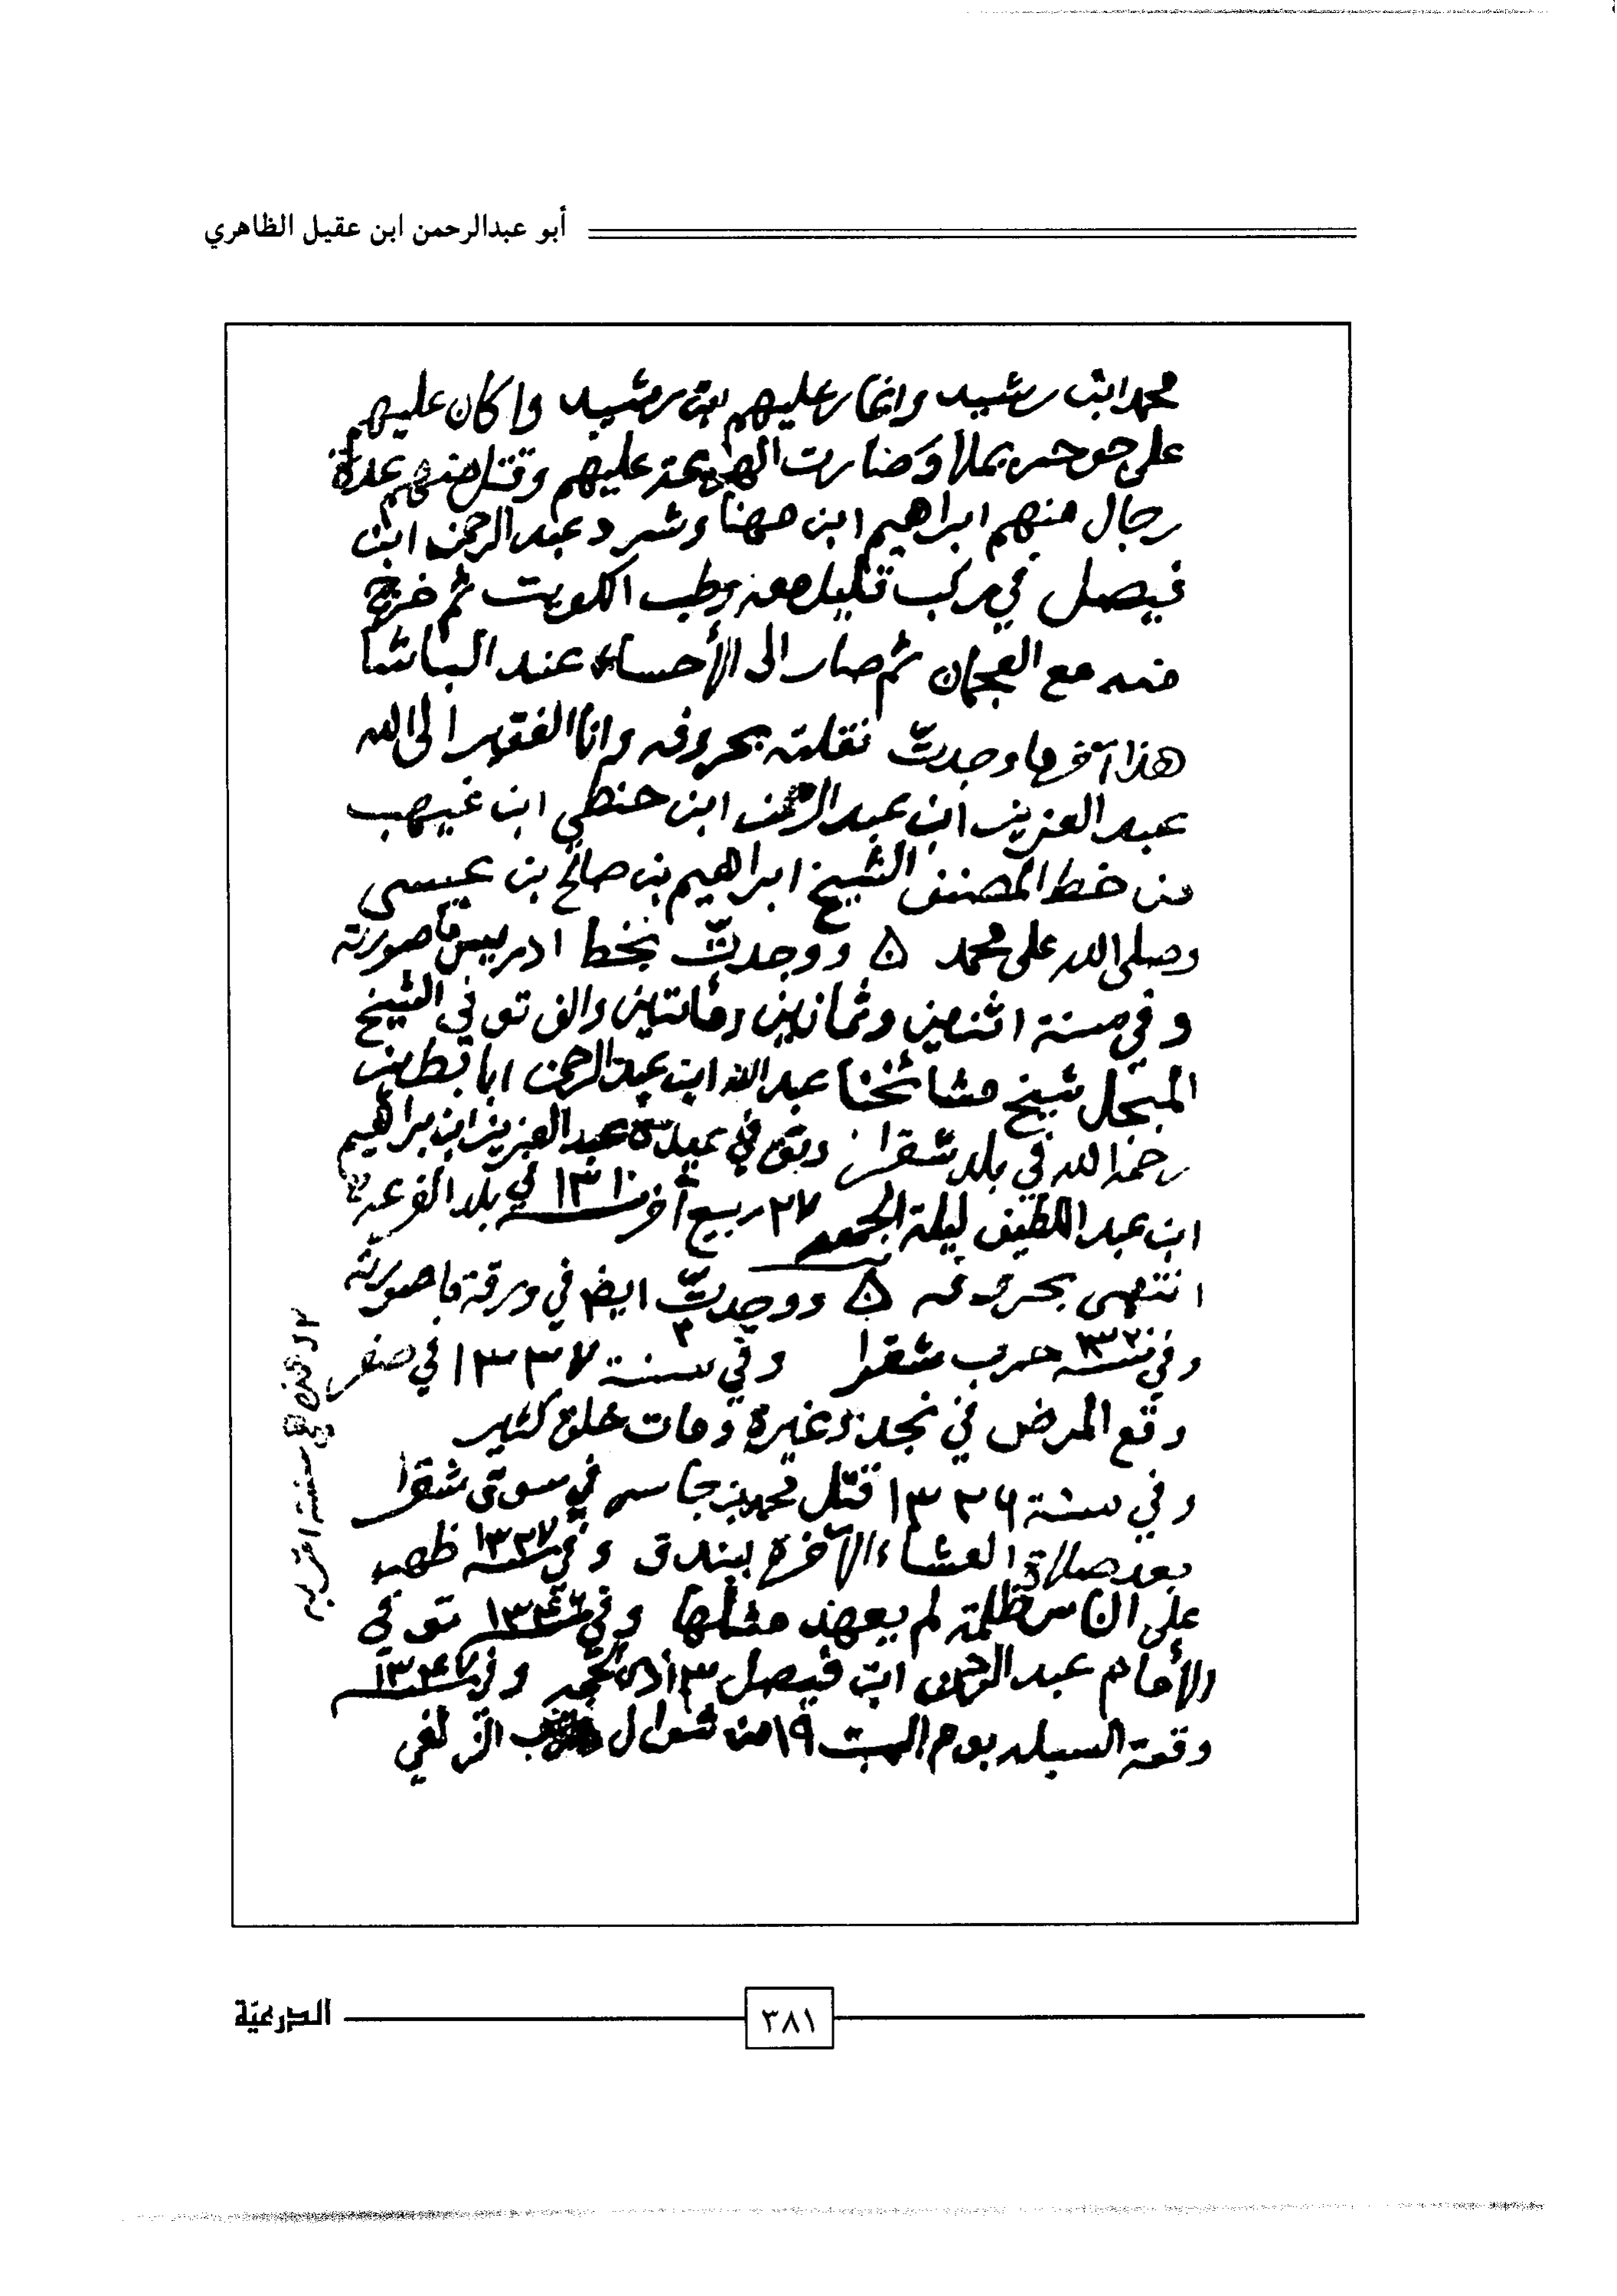 أبو عبدالرحمن ابن عقيل الظاهري
محمد ابن رشيد وانحار عليهم بن رشيد واكان عليهم
على حريملا وصارت الهزيمة عليهم وقتل منهم عدة
رجال منهم ابراهيم ابن مهنا وشرد عبد الرحمن ابن
فيصل في ركب قليل معه وطب الكويت ثم خرج
منه مع العجمان ثم صار الى الأحساء عند الباشا
هذا آخر ما وجدت نقلته بحروفه وانا الفقير الى الله
عبد العزيز ابن عبد الرحمن ابن حنطي ابن غيهب
من خط المصنف الشيخ ابراهيم بن صالح بن عيسى
وصلى الله على محمد ۞ ووجدت بخط ادريس ما صورته
وفي سنة اثنين وثمانين ومائتين والف توفي الشيخ
المبجل شيخ مشائخنا عبد الله ابن عبد الرحمن ابا بطين
رحمه الله في بلد شقرا وتوفي عبد العزيز ابن براهيم
ابن عبد اللطيف ليلة الجمعه ٢٧ ربيع آخر سنة ١٣١٠ في بلد الفرعه
انتهى بحروفه ۞ ووجدت ايض في ورقة ما صورته
وفي سنة ١٣٢٠ حرب شقرا وفي سنة ١٣٣٧ في صفر
وقع المرض في نجد وغيره ومات خلق كثير
وفي سنة ١٣٣٦ قتل محمد بن جاسر في سوق شقرا
بعد صلاة العشاء الآخرة ببندق وفي سنة ١٣٣٧ ظهر
على الناس ظلمة لم يعهد مثلها وفي سنة ١٣٤٦ توفي
الأمام عبد الرحمن ابن فيصل ١٣ ذي الحجه وفي سنة ١٣٤٧
وقعة السبله يوم السبت ١٩ من شوال الزلفي
سنة
٣٨١
الدرعيّة